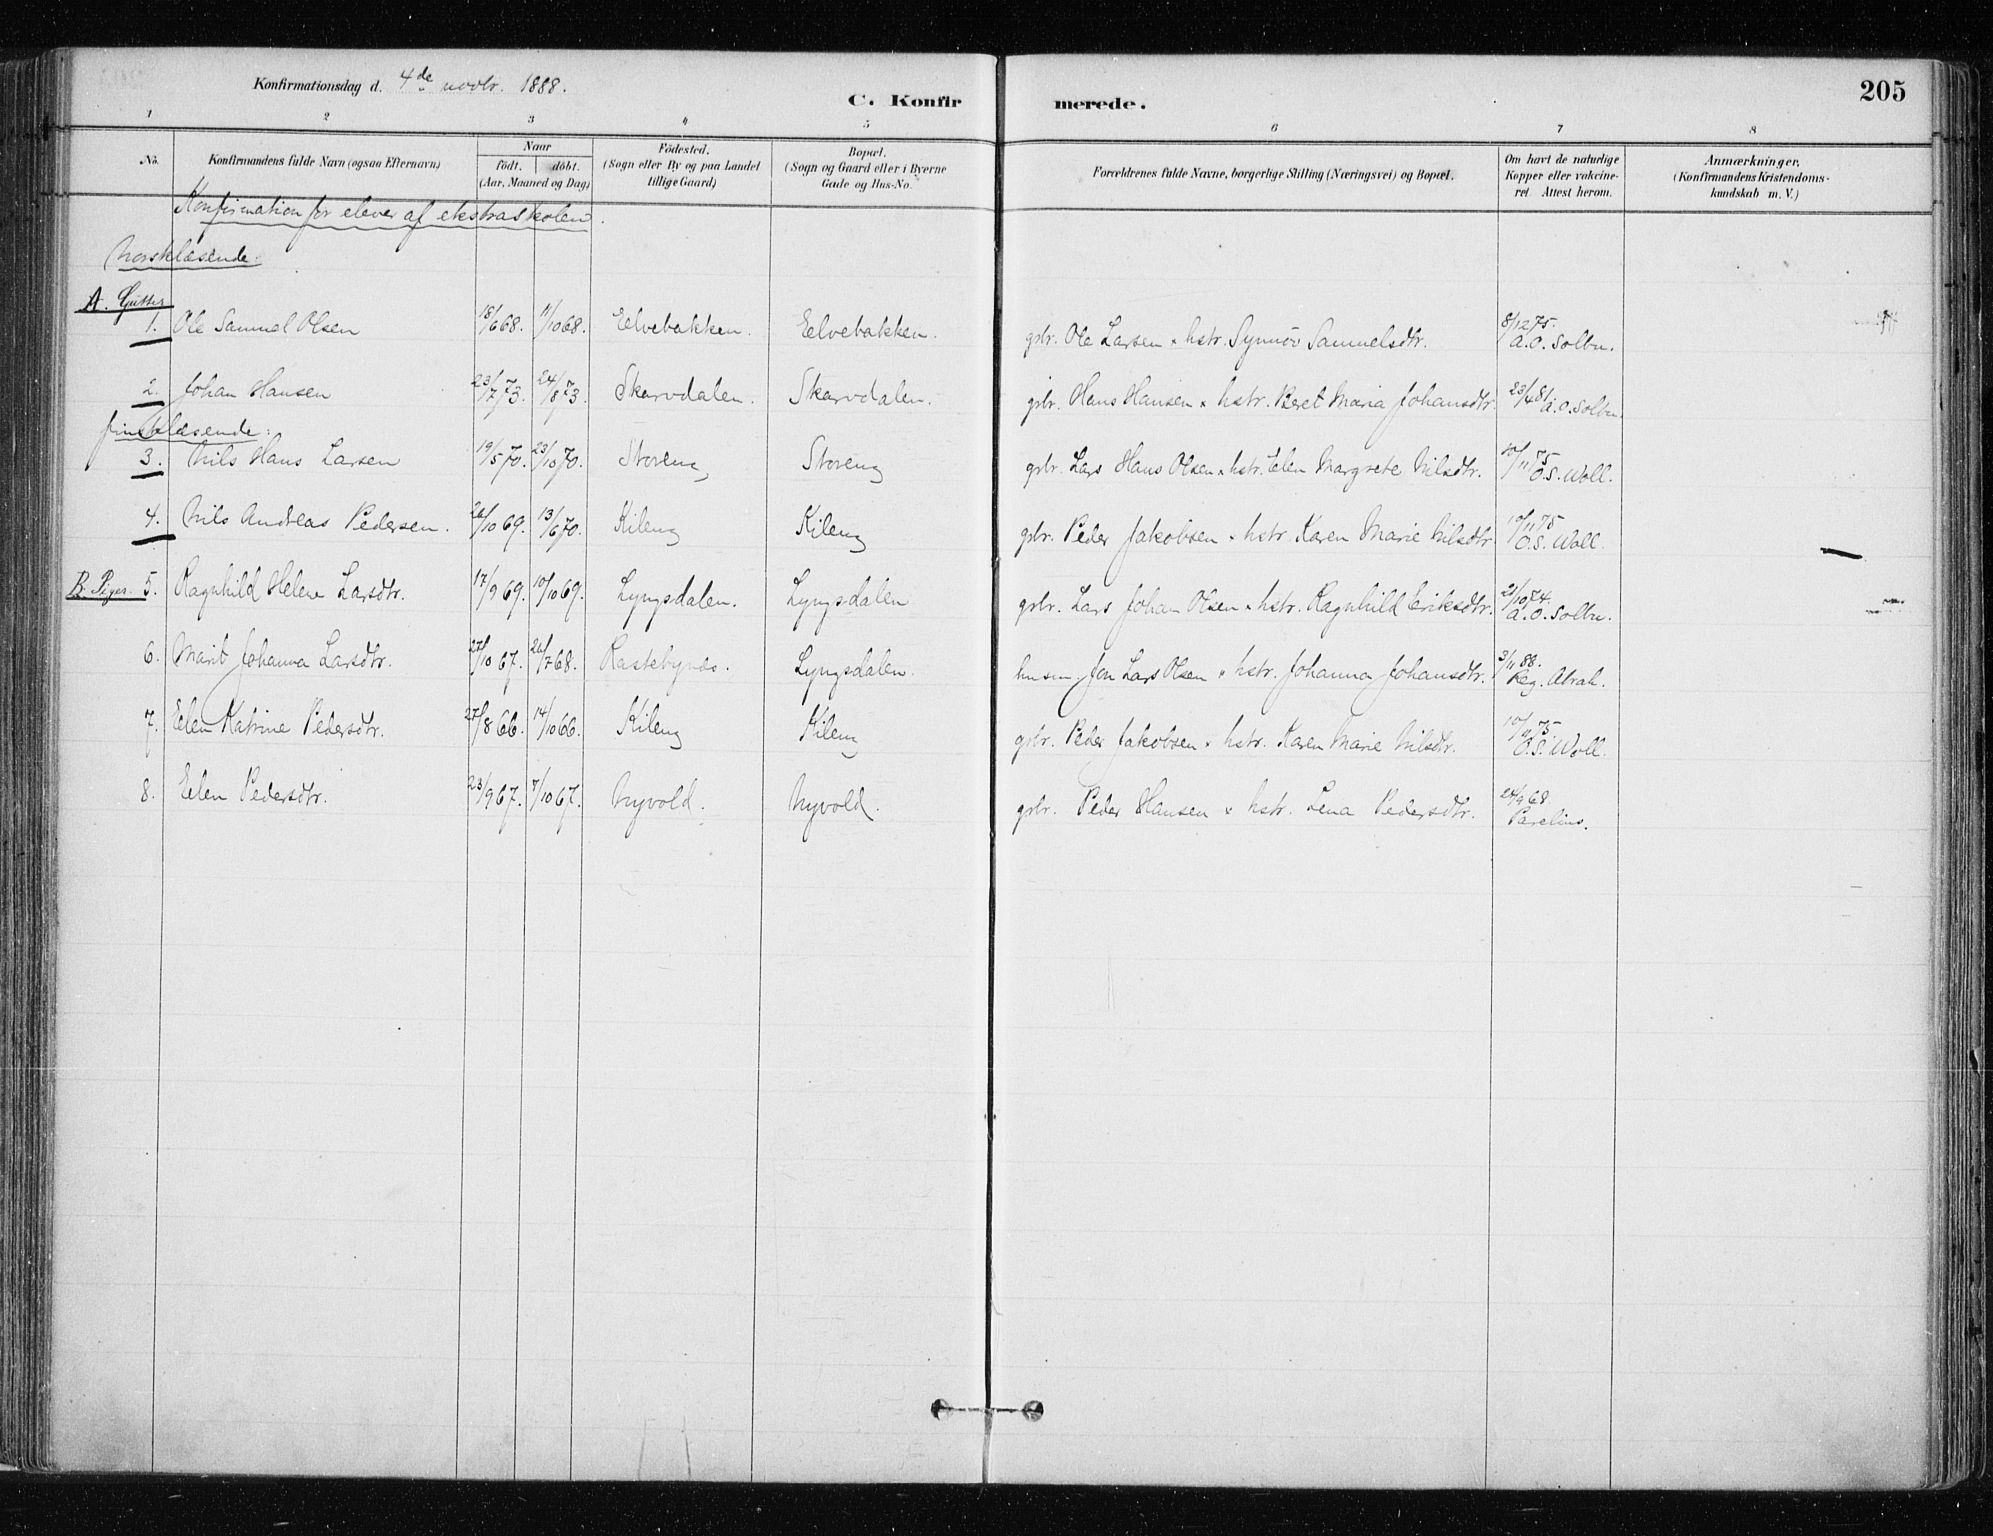 Konfirmationsdag d. 4de novbr. 1888.
C. Konfirmerede.
205
1 2 3 4 5 6 7 8
No. Konfirmandens fulde Navn (ogsaa Efternavn) Naar födt. döbt. (Aar, Maaned og Dag) Födested. (Sogn eller By og paa Landet tillige Gaard) Bopæl. (Sogn og Gaard eller i Byerne Gade og Hus-No. Forældrenes fulde Navne, borgerlige Stilling (Næringsvei) og Bopæl. Om havt de naturlige Kopper eller vakcineret. Attest herom. Anmærkninger. (Konfirmandens Kristendomskundskab m. V.)
Konfirmation for elever af ekstraskolen.
Norsklæsende:
A. Gutter
1. Ole Samuel Olsen 18/6 68. 11/10 68. Eelvebakken. Eelvebakken. gbr. Ole Larsen & hstr. Synnöv Samuelsdtr. 8/12 75. A. O. Solbu.
2. Johan Hansen 23/7 73. 24/8 73. Skarvdalen. Skarvdalen. gbr. Hans Hansen & hstr. Beret Maria Johansdtr. 23/4 81 A. O. Solbu.
finsklæsende:
3. Nils Hans Larsen 19/5 70. 23/10 70. Storeng Storeng gbr. Lars Hans Olsen & hstr. Elen Margrete Nilsdtr. 10/11 75 O. S. Woll.
4. Nils Andreas Pedersen. 26/10 69. 13/6 70. Kileng Kileng gbr. Peder Jakobsen & hstr. Karen Marie Nilsdtr. 10/11 75 O. S. Woll.
B. Piger. 5. Ragnhild Helene Larsdtr. 17/9 69. 10/10 69. Lyngsdalen. Lyngsdalen gbr. Lars Johan Olsen & hstr. Ragnhild Eriksdtr. 21/10 74. A. O. Solbu.
6. Marit Johanna Larsdtr. 27/10 67. 26/7 68. Rastebynæs. Lyngsdalen. husm. Jon Lars Olsen & hstr. Johanna Johansdtr. 3/11 88. Reg. Abrah.
7. Elen Katrine Pedersdtr. 27/8 66. 14/10 66. Kileng Kileng gbr. Peder Jakobsen & hstr. Karen Marie Nilsdtr. 10/11 75. O. S. Woll.
8. Elen Pedersdtr. 23/9 67. 7/10 67. Nyvold. Nyvold. gbr. Peder Hansen & hstr. Lena Pedersdtr. 24/9 68.